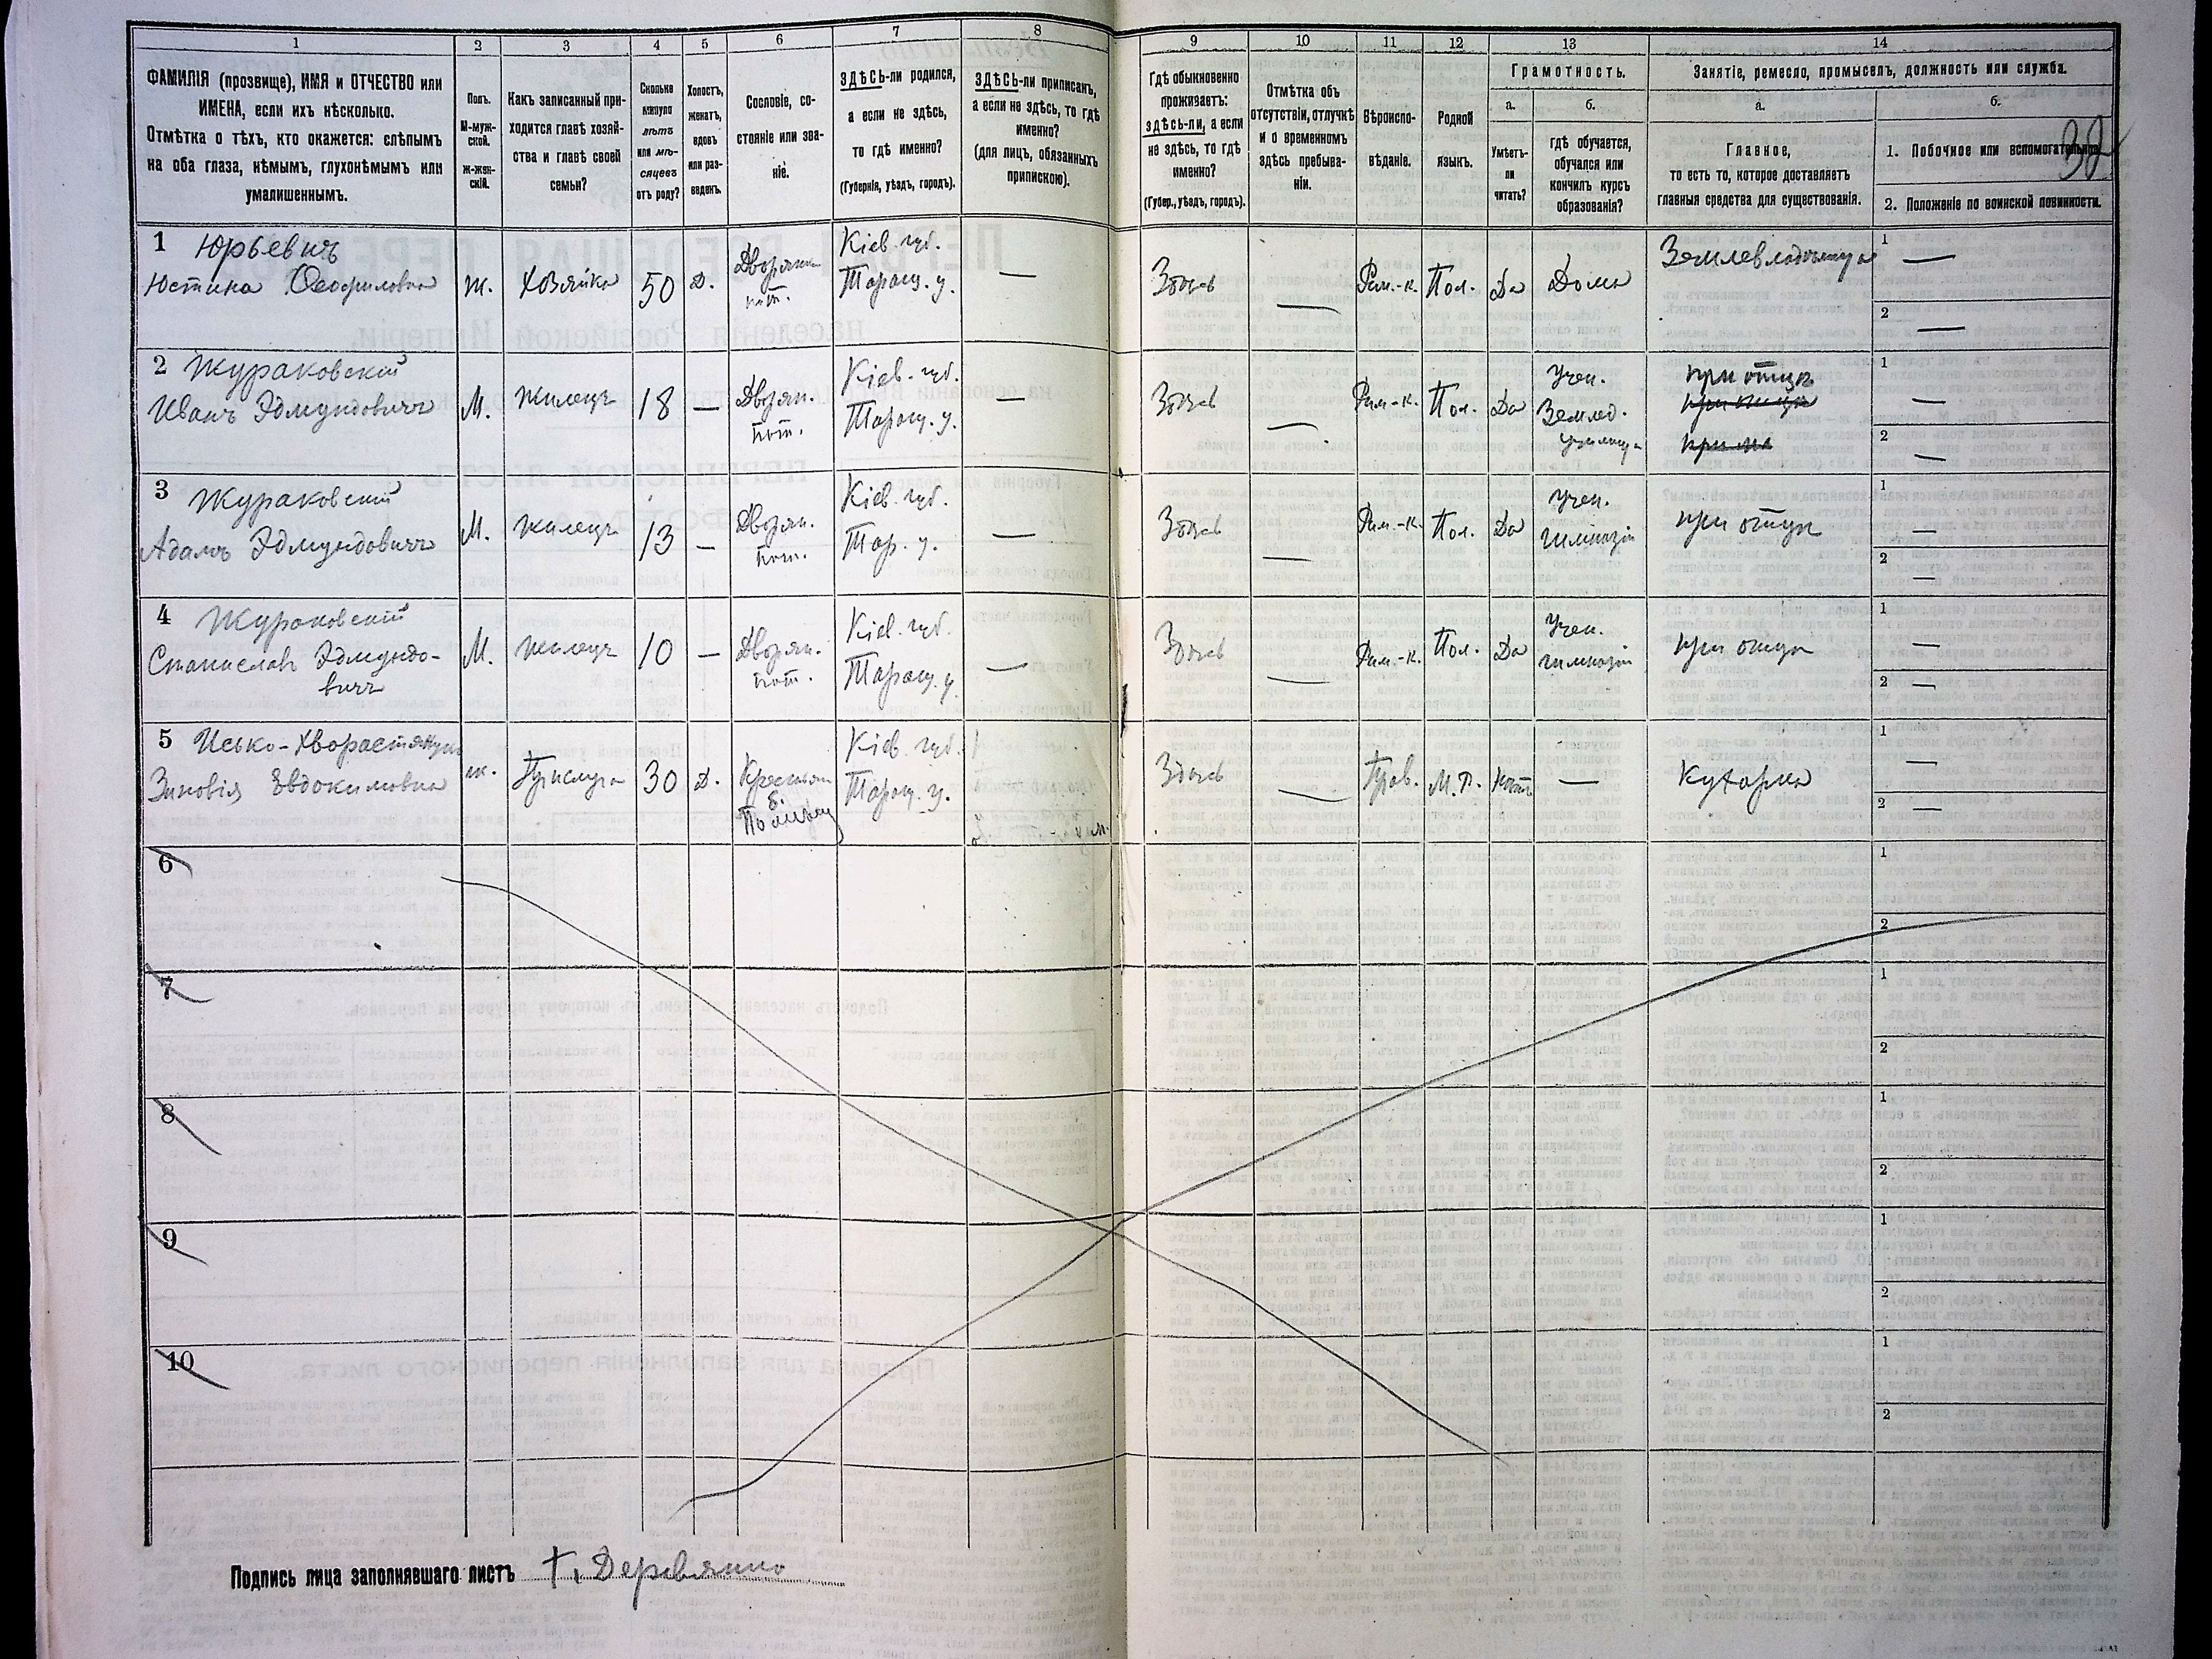 1
2
3
4
5
6
7
8
9
10
11
12
13
14
ФАМИЛІЯ (прозвище), ИМЯ и ОТЧЕСТВО или
ИМЕНА, если ихъ нѣсколько.
Отмѣтка о тѣхъ, кто окажется: слѣпымъ
на оба глаза, нѣмымъ, глухонѣмымъ или
умалишеннымъ.
Полъ.
М-муж-
ской.
ж-жен-
скій.
Какъ записанный при-
ходится главѣ хозяй-
ства и главѣ своей
семьи?
Сколько
минуло
лѣтъ
или мѣ-
сяцевъ
отъ роду?
Холостъ,
женатъ,
вдовъ
или раз-
веденъ.
Сословіе, со-
стояніе или зва-
ніе.
ЗДѢСЬ-ли родился,
а если не здѣсь,
то гдѣ именно?
(Губернія, уѣздъ, городъ).
ЗДѢСЬ-ли приписанъ,
а если не здѣсь, то гдѣ
именно?
(для лицъ, обязанныхъ
припискою).
Гдѣ обыкновенно
проживаетъ:
здѣсь-ли, а если
не здѣсь, то гдѣ
именно?
(Губер., уѣздъ, городъ).
Отмѣтка объ
отсутствіи, отлучкѣ
и о временномъ
здѣсь пребыва-
ніи.
Вѣроиспо-
вѣданіе.
Родной
языкъ.
Грамотность.
а.
б.
Умѣетъ-
ли
читать?
гдѣ обучается,
обучался или
кончилъ курсъ
образованія?
Занятіе, ремесло, промыселъ, должность или служба.
а.
б.
Главное,
то есть то, которое доставляетъ
главныя средства для существованія.
1. Побочное или вспомогательное.
2. Положеніе по воинской повинности.
32
1 Юрьевичъ
Юстина Ѳеофиловна
ж.
Хозяйка
50
Д.
Дворянка
пот.
Кіев. губ.
Таращ. у.
—
Здѣсь
—
Рим.-к.
Пол.
Да
Дома
Землевладѣлица
1 —
2 —
2 Жураковскій
Иванъ Эдмундовичъ
М.
Жилецъ
18
—
Дворян.
пот.
Кіев. губ.
Таращ. у.
—
Здѣсь
—
Рим.-к.
Пол.
Да
Учен.
Землед.
училища
при отцѣ
1 —
2 —
3 Жураковскій
Адамъ Эдмундовичъ
М.
Жилецъ
13
—
Дворян.
пот.
Кіев. губ.
Тар. у.
—
Здѣсь
—
Рим.-к.
Пол.
Да
Учен.
гимназіи
при отцѣ
1 —
2 —
4 Жураковскій
Станиславъ Эдмундо-
вичъ
М.
Жилецъ
10
—
Дворян.
пот.
Кіев. губ.
Таращ. у.
—
Здѣсь
—
Рим.-к.
Пол.
Да
Учен.
гимназіи
при отцѣ
1 —
2 —
5
Зиновія Евдокимовна
ж.
Прислуга
30
Д.
Крестьян
б.
Кіев. губ.
Таращ. у.
Здѣсь
—
Прав.
М.Р.
Нѣтъ
—
Кухарка
1 —
2 —
6
1
2
7
1
2
8
1
2
9
1
2
10
1
2
Подпись лица заполнявшаго листъ Деревянко